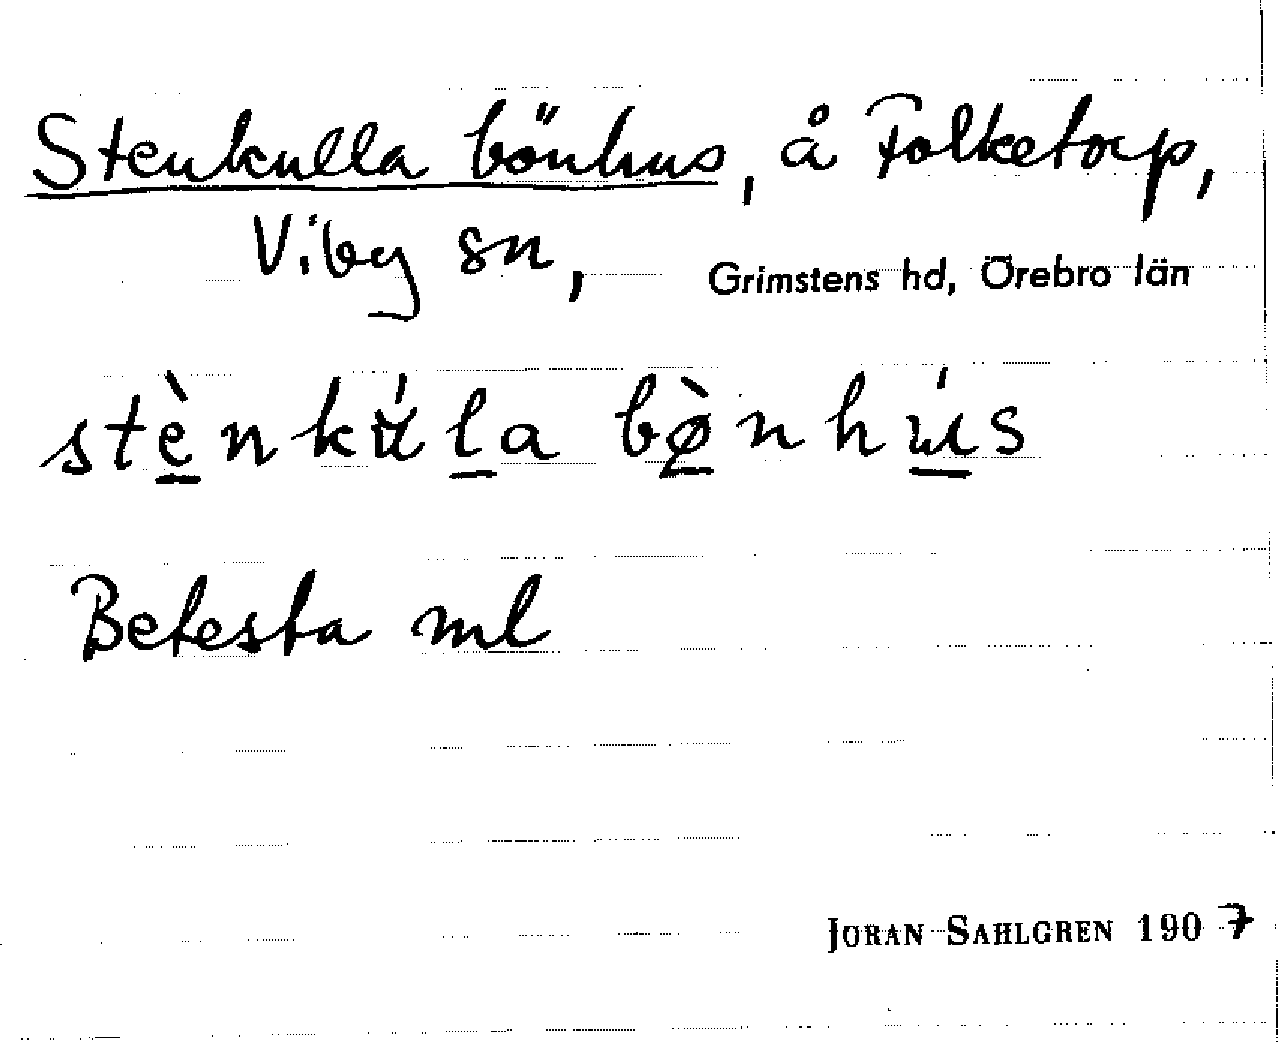 Stenkulla bönhus, å Folketorp,
Viby sn, Grimstens hd, Örebro län
stè̱nkúḻa bø̱̀nhú̱s
Betesta ml
JÖRAN SAHLGREN 1907